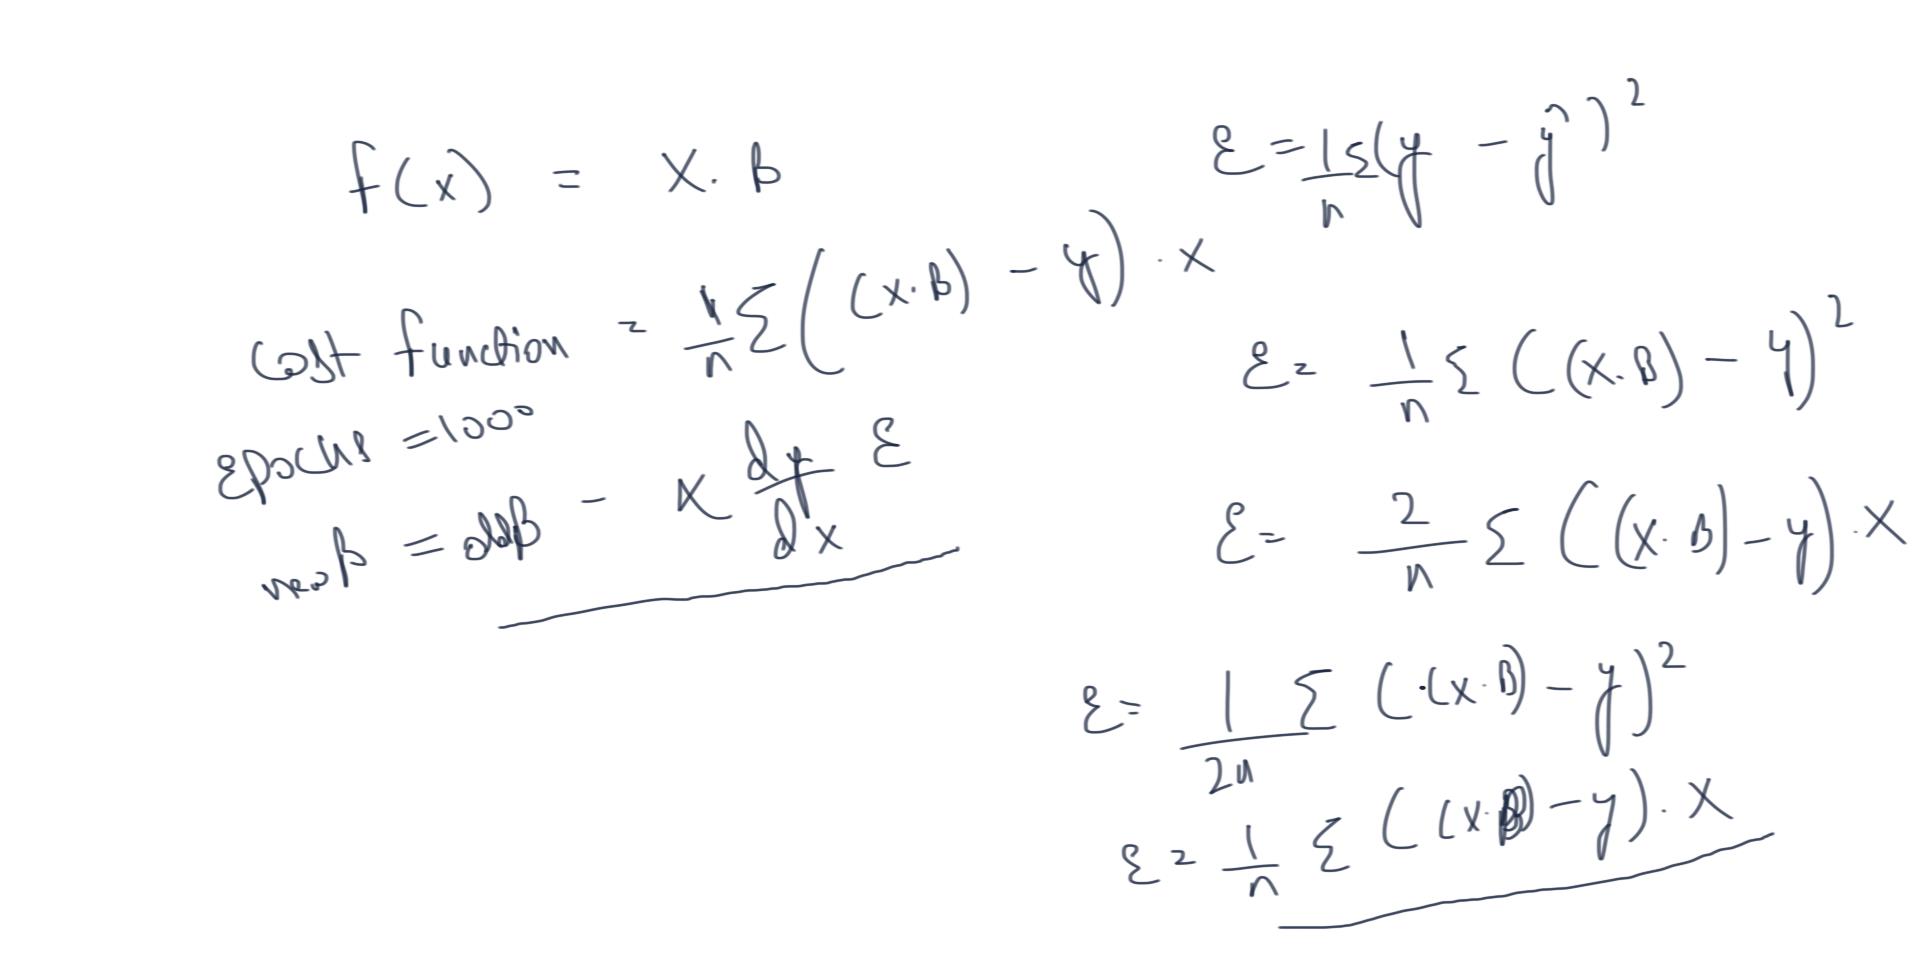 f(x) = X. B
Cost function = 1/n Σ((x.B) - y) . x
Epochs = 1000
new β = old β - α dy/dx ε
ε = 1/n Σ(y - ŷ)²
ε = 1/n Σ ((x.B) - y)²
ε = 2/n Σ ((x. B) - y) . x
ε = 1/2n Σ ((x.B) - y)²
ε = 1/n Σ ((x.B) - y) . x